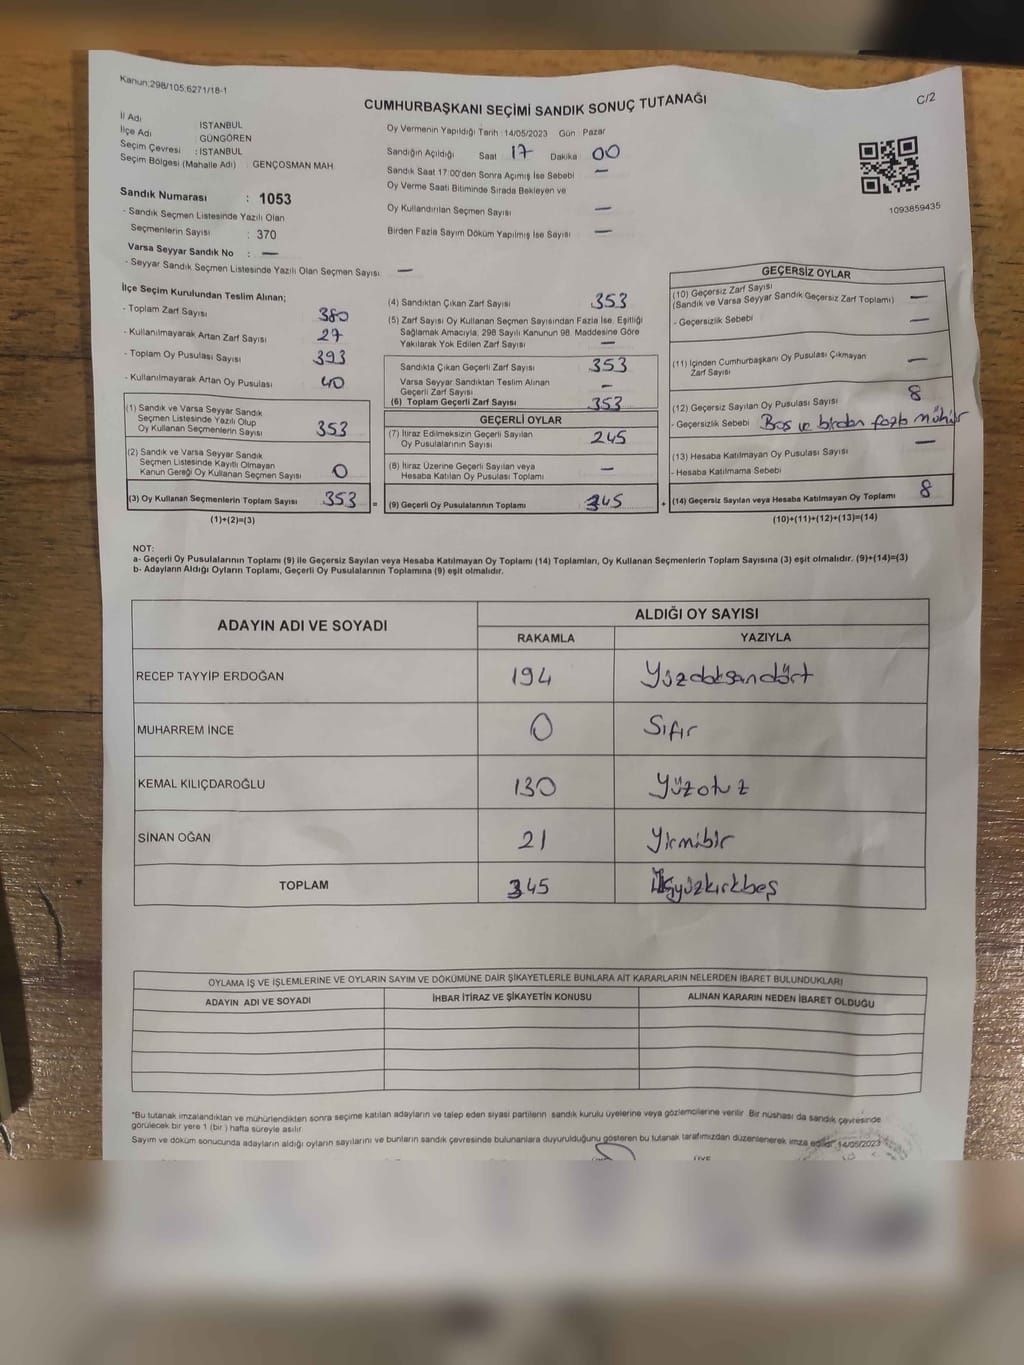 Kanun:298/105,6271/18-1
CUMHURBAŞKANI SEÇİMİ SANDIK SONUÇ TUTANAĞI
C/2
İl Adı : İSTANBUL
İlçe Adı : GÜNGÖREN
Seçim Çevresi : İSTANBUL
Seçim Bölgesi (Mahalle Adı) : GENÇOSMAN MAH.
Sandık Numarası : 1053
- Sandık Seçmen Listesinde Yazılı Olan
Seçmenlerin Sayısı : 370
Varsa Seyyar Sandık No : —
- Seyyar Sandık Seçmen Listesinde Yazılı Olan Seçmen Sayısı —
Oy Vermenin Yapıldığı Tarih : 14/05/2023 Gün : Pazar
Sandığın Açıldığı Saat 17 Dakika : 00
Sandık Saat 17:00'den Sonra Açılmış İse Sebebi —
Oy Verme Saati Bitiminde Sırada Bekleyen ve
Oy Kullandırılan Seçmen Sayısı —
Birden Fazla Sayım Döküm Yapılmış İse Sayısı —
1093859435
İlçe Seçim Kurulundan Teslim Alınan;
- Toplam Zarf Sayısı 380
- Kullanılmayarak Artan Zarf Sayısı 27
- Toplam Oy Pusulası Sayısı 393
- Kullanılmayarak Artan Oy Pusulası 40
(1) Sandık ve Varsa Seyyar Sandık
Seçmen Listesinde Yazılı Olup
Oy Kullanan Seçmenlerin Sayısı 353
(2) Sandık ve Varsa Seyyar Sandık
Seçmen Listesinde Kayıtlı Olmayan
Kanun Gereği Oy Kullanan Seçmen Sayısı 0
(3) Oy Kullanan Seçmenlerin Toplam Sayısı 353 =
(1)+(2)=(3)
(4) Sandıktan Çıkan Zarf Sayısı 353
(5) Zarf Sayısı Oy Kullanan Seçmen Sayısından Fazla İse, Eşitliği
Sağlamak Amacıyla, 298 Sayılı Kanunun 98. Maddesine Göre
Yakılarak Yok Edilen Zarf Sayısı —
Sandıkta Çıkan Geçerli Zarf Sayısı 353
Varsa Seyyar Sandıktan Teslim Alınan
Geçerli Zarf Sayısı —
(6) Toplam Geçerli Zarf Sayısı 353
GEÇERLİ OYLAR
(7) İtiraz Edilmeksizin Geçerli Sayılan
Oy Pusulalarının Sayısı 245
(8) İtiraz Üzerine Geçerli Sayılan veya
Hesaba Katılan Oy Pusulası Toplamı —
(9) Geçerli Oy Pusulalarının Toplamı 345 +
GEÇERSİZ OYLAR
(10) Geçersiz Zarf Sayısı
(Sandık ve Varsa Seyyar Sandık Geçersiz Zarf Toplamı) —
- Geçersizlik Sebebi —
(11) İçinden Cumhurbaşkanı Oy Pusulası Çıkmayan
Zarf Sayısı —
(12) Geçersiz Sayılan Oy Pusulası Sayısı 8
- Geçersizlik Sebebi Boş ve birden fazla mühür
(13) Hesaba Katılmayan Oy Pusulası Sayısı —
- Hesaba Katılmama Sebebi
(14) Geçersiz Sayılan veya Hesaba Katılmayan Oy Toplamı 8
(10)+(11)+(12)+(13)=(14)
NOT:
a- Geçerli Oy Pusulalarının Toplamı (9) ile Geçersiz Sayılan veya Hesaba Katılmayan Oy Toplamı (14) Toplamları, Oy Kullanan Seçmenlerin Toplam Sayısına (3) eşit olmalıdır. (9)+(14)=(3)
b- Adayların Aldığı Oyların Toplamı, Geçerli Oy Pusulalarının Toplamına (9) eşit olmalıdır.
ADAYIN ADI VE SOYADI ALDIĞI OY SAYISI
RAKAMLA YAZIYLA
RECEP TAYYİP ERDOĞAN 194 Yüzdoksandört
MUHARREM İNCE 0 Sıfır
KEMAL KILIÇDAROĞLU 130 Yüzotuz
SİNAN OĞAN 21 Yirmibir
TOPLAM 345 yüzkırkbeş
OYLAMA İŞ VE İŞLEMLERİNE VE OYLARIN SAYIM VE DÖKÜMÜNE DAİR ŞİKAYETLERLE BUNLARA AİT KARARLARIN NELERDEN İBARET BULUNDUKLARI
ADAYIN ADI VE SOYADI İHBAR İTİRAZ VE ŞİKAYETİN KONUSU ALINAN KARARIN NEDEN İBARET OLDUĞU
*Bu tutanak imzalandıktan ve mühürlendikten sonra seçime katılan adayların ve talep eden siyasi partilerin sandık kurulu üyelerine veya gözlemcilerine verilir. Bir nüshası da sandık çevresinde
görülecek bir yere 1 (bir) hafta süreyle asılır.
Sayım ve döküm sonucunda adayların aldığı oyların sayılarını ve bunların sandık çevresinde bulunanlara duyurulduğunu gösteren bu tutanak tarafımızdan düzenlenerek imza edildi. 14/05/2023
ÜYE